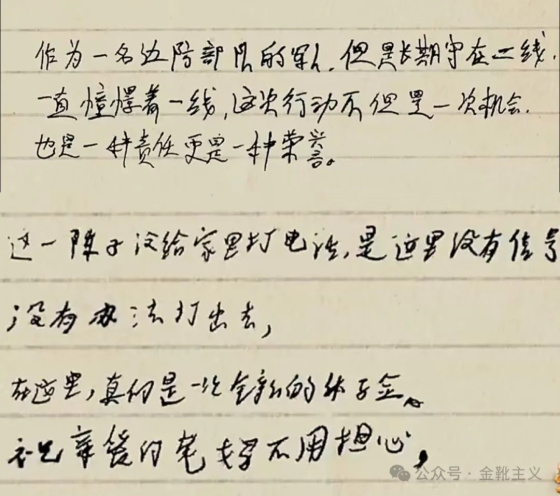 作为一名边防部队的军人,但是长期守在二线.
一直憧憬着一线,这次行动不但是一次机会.
也是一种责任更是一种荣誉。
这一阵子没给家里打电话,是这里没有信号
没有办法打出去,
在这里,真的是一次全新的体验。
亲爱的爸妈不用担心,
公众号·金靴主义